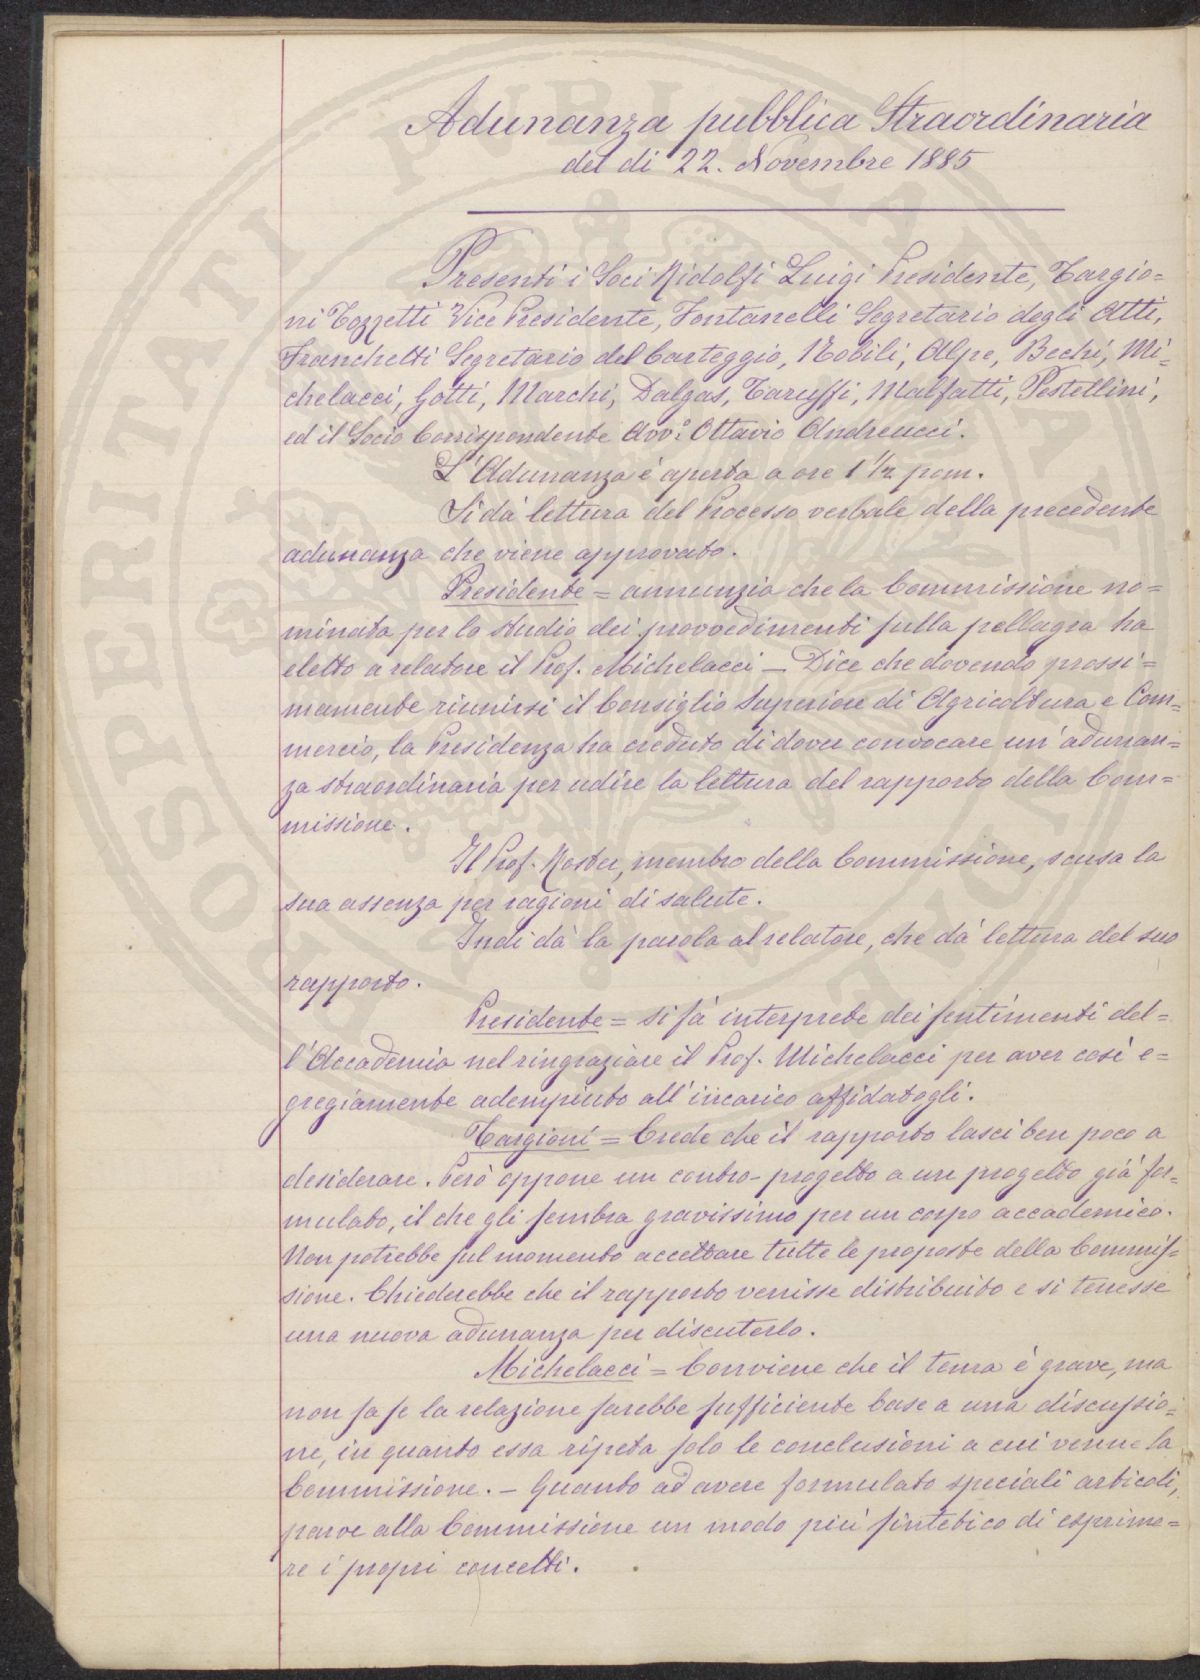 Adunanza pubblica Straordinaria
del dì 22. Novembre 1885
Presenti i Soci Ridolfi Luigi Presidente, Targio=
ni Tozzetti Vice Presidente, Fontanelli Segretario degli Atti,
Franchetti Segretario del Carteggio, Nobili, Alpe, Bechi, Mi=
chelacci, Gotti, Marchi, Dalgas, Taruffi, Malfatti, Pestellini,
ed il Socio Corrispondente Avvo: Ottavio Andreucci.
L'Adunanza è aperta a ore 1 1/2 pom.
Si dà lettura del Processo verbale della precedente
adunanza che viene approvato.
Presidente = annunzia che la Commissione no=
minata per lo studio dei provvedimenti sulla pellagra ha
eletto a relatore il Prof. Michelacci — Dice che dovendo prossi=
mamente riunirsi il Consiglio Superiore di Agricoltura e Com=
mercio, la Presidenza ha creduto di dover convocare un' adunan=
za straordinaria per udire la lettura del rapporto della Com=
missione.
Il Prof. Roster, membro della Commissione, scusa la
sua assenza per ragioni di salute.
Indi dà la parola al relatore, che dà lettura del suo
rapporto.
Presidente = si fà interprete dei sentimenti del=
l'Accademia nel ringraziare il Prof. Michelacci per aver così e=
gregiamente adempiuto all' incarico affidatogli.
Targioni = Crede che il rapporto lasci ben poco a
desiderare. Però oppone un contro-progetto a un progetto già for=
mulato, il che gli sembra gravissimo per un corpo accademico.
Non potrebbe sul momento accettare tutte le proposte della Commis=
sione. Chiederebbe che il rapporto venisse distribuito e si tenesse
una nuova adunanza per discuterlo.
Michelacci = Conviene che il tema è grave, ma
non sa se la relazione sarebbe sufficiente base a una discussio=
ne, in quanto essa ripeta solo le conclusioni a cui venne la
Commissione. — Quanto ad avere formulato speciali articoli,
parve alla Commissione un modo più sintetico di esprime=
re i propri concetti.
PROSPERITATI PUBLICAE AUGENDAE